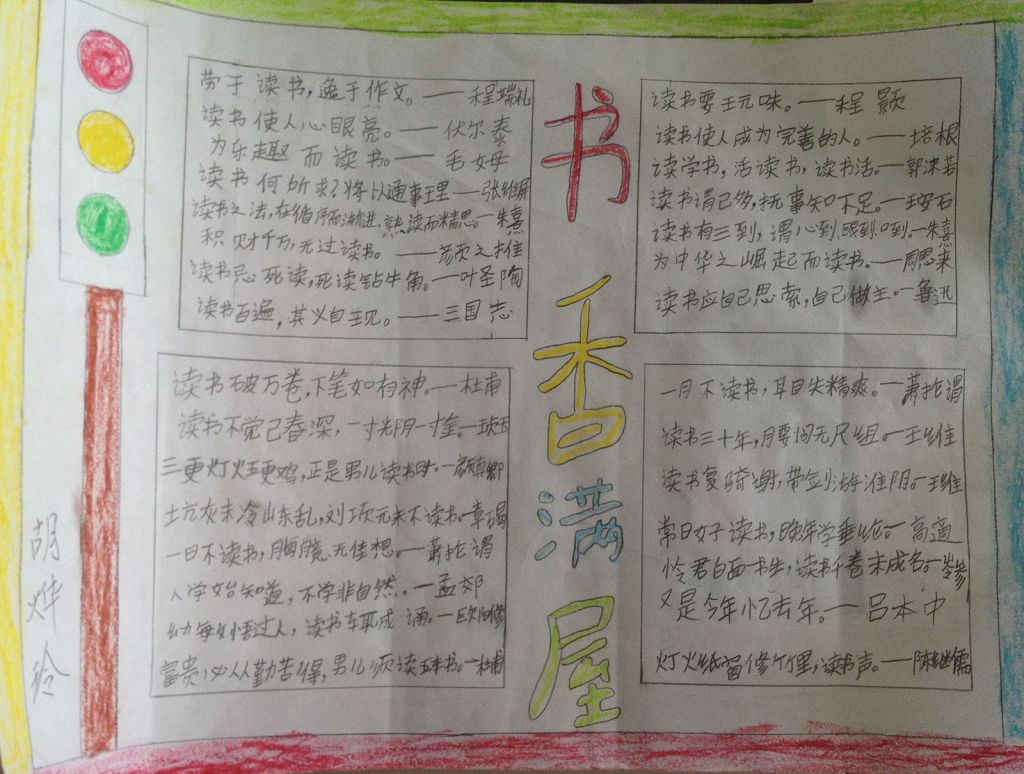 书香满屋
劳于读书，逸于作文。——程端礼
读书使人心眼亮。——伏尔泰
为乐趣而读书。——毛姆
读书何所求？将以通事理——张维屏
读书之法，在循序而渐进，熟读而精思。—朱熹
积财千万，无过读书。——颜之推
读书忌死读，死读钻牛角。—叶圣陶
读书百遍，其义自王见。——三国志
读书要玩味。——程颢
读书使人成为完善的人。——培根
读学书，活读书，读书活。—郭沫若
读书谓已多，抚事知不足。—王安石
读书有三到，谓心到眼到口到。—朱熹
为中华之崛起而读书。—周恩来
读书应自己思索，自己做主。—鲁迅
读书破万卷，下笔如有神。—杜甫
读书不觉已春深，一寸光阴一寸金。—王贞白
三更灯火王更鸡，正是男儿读书时。—颜真卿
土坑灰未冷山东乱，刘项元来不读书。—章碣
一日不读书，胸臆无佳想。—萧抡谓
人学始知道，不学非自然。—孟郊
幼每悟过人，读书车取成诵。—欧阳修
富贵必从勤苦得，男儿须读五车书。—杜甫
一月不读书，耳目失精爽。—萧抡谓
读书三十年，腰间无尺组。—王维
读书复骑射，带剑游淮阴。—王维
常日好读书，晚年学垂纶。—高適
怜君白面一书生，读书千卷未成名。—岑参
又是今年忆去年。—吕本中
灯火纸窗修竹里，读书声。—陈继儒
胡烨玲